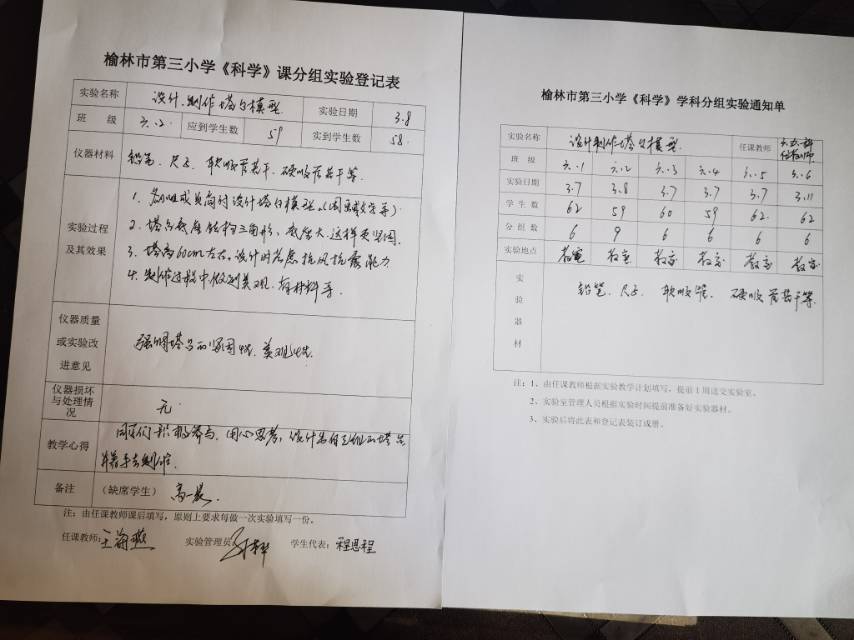 榆林市第三小学《科学》课分组实验登记表
实验名称 设计制作塔台模型 实验日期 3.8
班 级 六.2 应到学生数 59 实到学生数 58
仪器材料 铅笔、尺子、软吸管若干、硬吸管若干等.
实验过程及其效果
1. 小组成员商讨设计塔台模型。(图画或文字等)
2. 塔台底座结构三角形,底座大,这样更坚固.
3. 塔高60cm左右,设计时考虑抗风抗震能力
4. 制作过程中做到美观,省材料等.
仪器质量或实验改进意见 强调塔台的坚固性、美观性.
仪器损坏与处理情况 无
教学心得 同学们积极参与,用心思考,设计出自己组的塔台
并着手去制作.
备注 (缺席学生) 高一晨.
注:由任课教师课后填写,原则上要求每做一次实验填写一份。
任课教师: 王海燕 实验管理员: 学生代表: 程思程
榆林市第三小学《科学》学科分组实验通知单
实验名称 设计制作塔台模型. 任课教师
班 级 六.1 六.2 六.3 六.4 六.5 六.6
实验日期 3.7 3.8 3.7 3.7 3.7 3.11
学 生 数 62 59 60 59 62. 62
分 组 数 6 9 6 6 6 6
实验地点 教室 教室 教室 教室 教室 教室
实验器材 铅笔、尺子、软吸管、硬吸管若干等.
注:1、由任课教师根据实验教学计划填写,提前1周送交实验室。
2、实验室管理人员根据实验时间提前准备好实验器材。
3、实验后将此表和登记表装订成册。